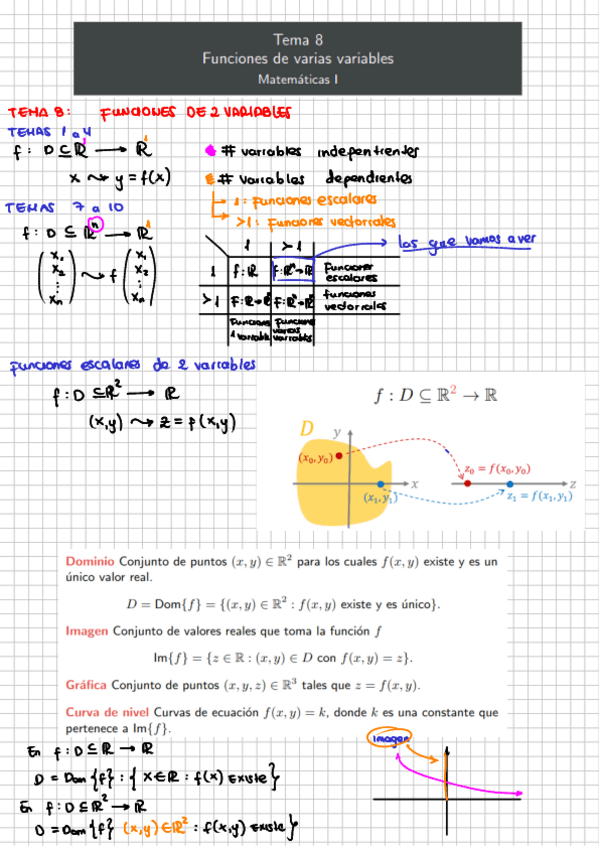 Tema 8
Funciones de varias variables
Matemáticas I
TEMA 8: FUNCIONES DE 2 VARIABLES
TEMAS 1 a 4
f: D ⊆ ℝ¹ → ℝ¹
x ⇝ y = f(x)
# variables independientes
# variables dependientes
1: Funciones escalares
>1: Funciones vectoriales
TEMAS 7 a 10
f: D ⊆ ℝⁿ → ℝ¹
(x₁ x₂ ⋮ xₙ) ⇝ f (x₁ x₂ ⋮ xₙ)
1 >1
los que vamos a ver
1 f: ℝ f: ℝⁿ→ℝ Funciones escalares
>1 funciones vectoriales
Funciones 1 variable Funciones varias variables
Funciones escalares de 2 variables
f: D ⊆ ℝ² → ℝ
(x,y) ⇝ z = f(x,y)
f : D ⊆ ℝ² → ℝ
D
y
(x₀, y₀)
z₀ = f(x₀, y₀)
x
z
(x₁, y₁)
z₁ = f(x₁, y₁)
Dominio Conjunto de puntos (x, y) ∈ ℝ² para los cuales f(x, y) existe y es un
único valor real.
D = Dom{f} = {(x, y) ∈ ℝ² : f(x, y) existe y es único}.
Imagen Conjunto de valores reales que toma la función f
Im{f} = {z ∈ ℝ : (x, y) ∈ D con f(x, y) = z}.
Gráfica Conjunto de puntos (x, y, z) ∈ ℝ³ tales que z = f(x, y).
Curva de nivel Curvas de ecuación f(x, y) = k, donde k es una constante que
pertenece a Im{f}.
En f: D ⊆ ℝ → ℝ
imagen
D = Dom {f} : {x ∈ ℝ : f(x) existe}
En f: D ⊆ ℝ² → ℝ
D = Dom {f} (x,y) ∈ ℝ² : f(x,y) existe}